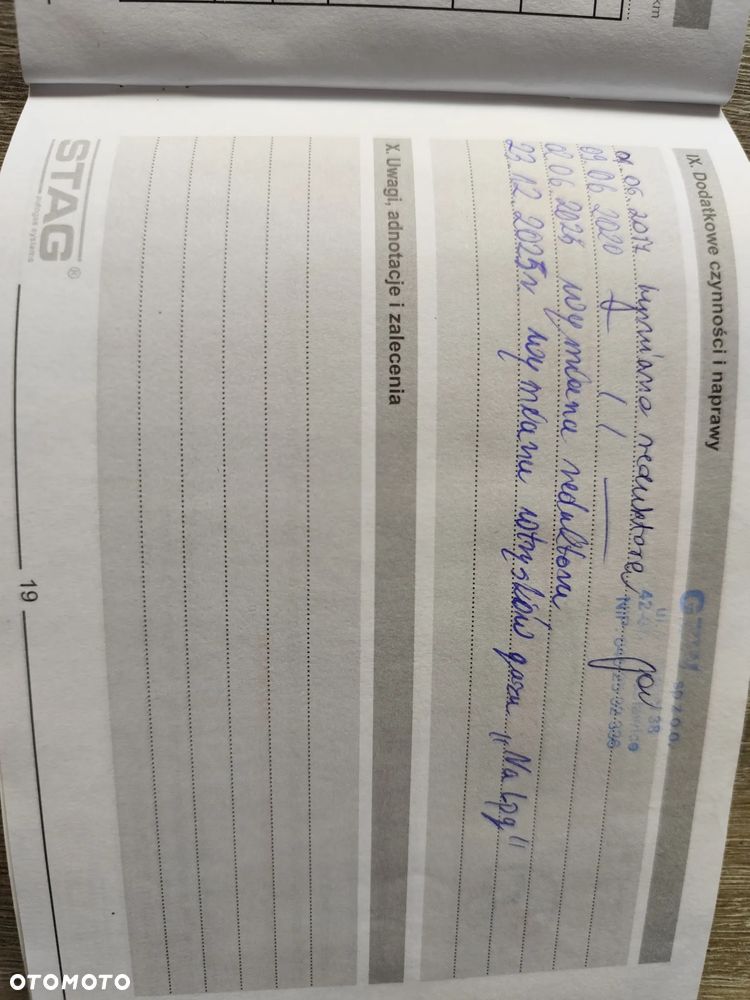 km
IX. Dodatkowe czynności i naprawy
01.06.2017 wymiana reduktora
09.06.2020 — || —
01.06.2023 wymiana reduktora
23.12.2023r wymiana wtrysków gazu „Na lpg"
sp. z o.o.
38
NIP
X. Uwagi, adnotacje i zalecenia
STAG®
autogas systems
19
OTOMOTO